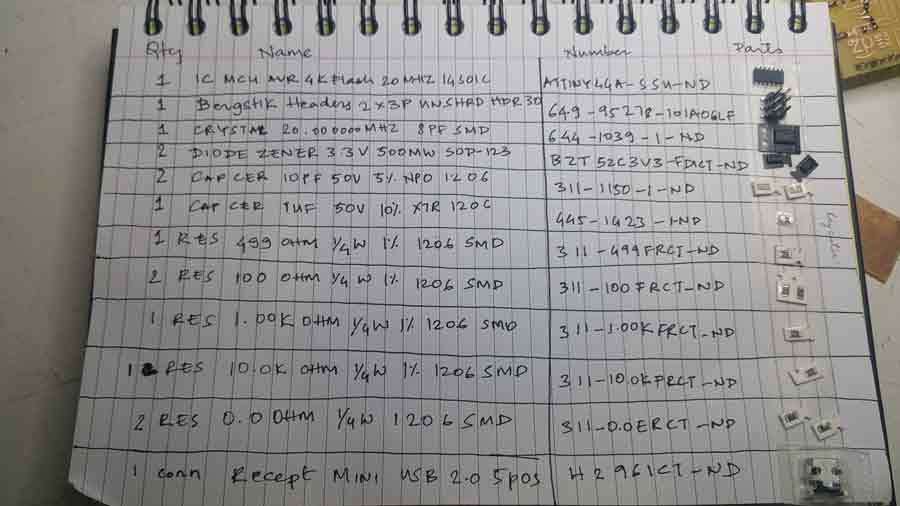 Qty Name Number Parts
1 IC MCU AVR 4K Flash 20MHZ 14SOIC ATTINY44A-SSU-ND
1 Bergstik Headers 2x3P UNSHRD HDR 30 649-95278-101A06LF
1 CRYSTAL 20.000000MHZ 8PF SMD 644-1039-1-ND
2 DIODE ZENER 3.3V 500MW SOD-123 BZT52C3V3-FDICT-ND
2 CAP CER 10PF 50V 5% NPO 1206 311-1150-1-ND
1 CAP CER 1UF 50V 10% X7R 1206 445-1423-1-ND
1 RES 499 OHM 1/4W 1% 1206 SMD 311-499FRCT-ND
2 RES 100 OHM 1/4W 1% 1206 SMD 311-100FRCT-ND
1 RES 1.00K OHM 1/4W 1% 1206 SMD 311-1.00KFRCT-ND
1 RES 10.0K OHM 1/4W 1% 1206 SMD 311-10.0KFRCT-ND
2 RES 0.0 OHM 1/4W 1206 SMD 311-0.0ERCT-ND
1 conn Recept MINI USB 2.0 5pos H2961CT-ND